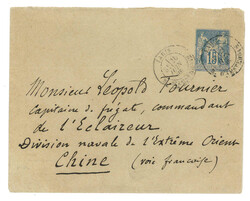 15
Monsieur Léopold Fournier
Capitaine de frégate, commandant
de l'Eclaireur
Division navale de l'Extrême Orient
Chine (voie française)